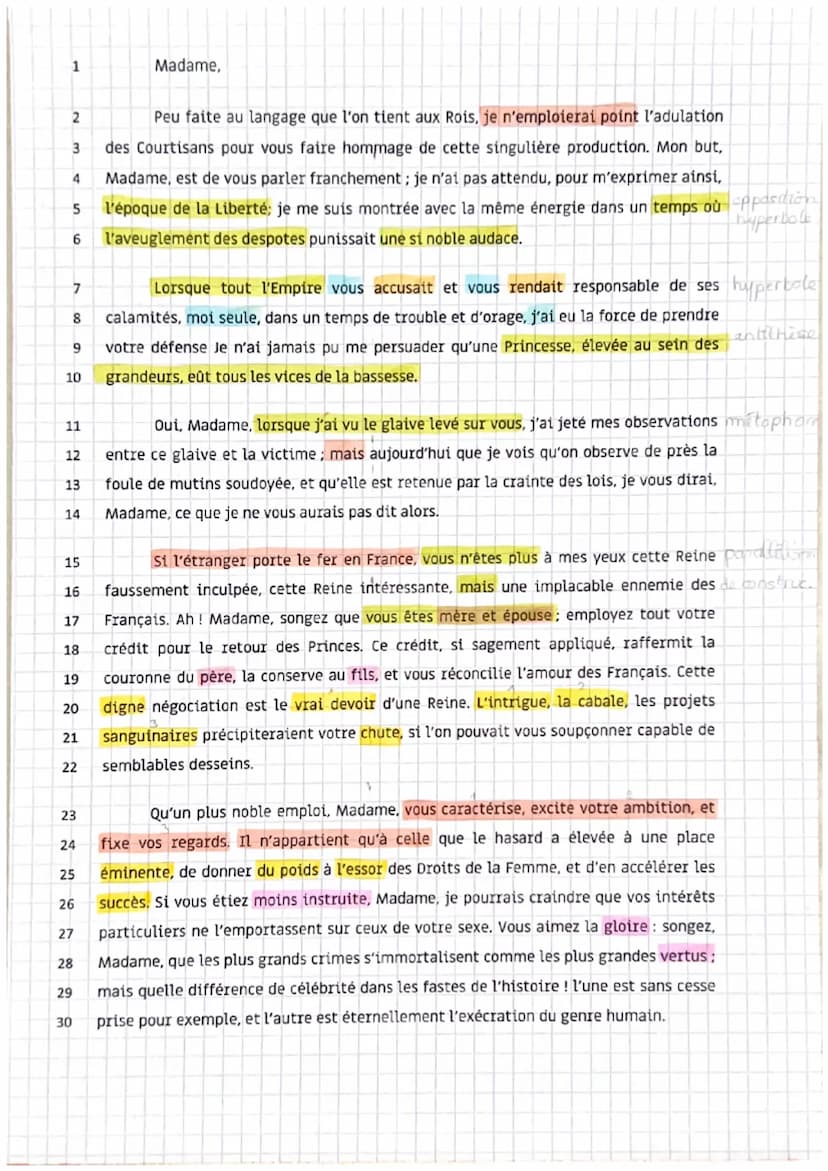 1 Madame,
2 Peu faite au langage que l'on tient aux Rois, je n'emploierai point l'adulation
3 des Courtisans pour vous faire hommage de cette singulière production. Mon but,
4 Madame, est de vous parler franchement ; je n'ai pas attendu, pour m'exprimer ainsi,
5 l'époque de la Liberté; je me suis montrée avec la même énergie dans un temps où opposition
hyperbole
6 l'aveuglement des despotes punissait une si noble audace.
7 Lorsque tout l'Empire vous accusait et vous rendait responsable de ses hyperbole
8 calamités, moi seule, dans un temps de trouble et d'orage, j'ai eu la force de prendre
9 votre défense Je n'ai jamais pu me persuader qu'une Princesse, élevée au sein des antithèse
10 grandeurs, eût tous les vices de la bassesse.
11 Oui, Madame, lorsque j'ai vu le glaive levé sur vous, j'ai jeté mes observations métaphor
12 entre ce glaive et la victime ; mais aujourd'hui que je vois qu'on observe de près la
13 foule de mutins soudoyée, et qu'elle est retenue par la crainte des lois, je vous dirai,
14 Madame, ce que je ne vous aurais pas dit alors.
15 Si l'étranger porte le fer en France, vous n'êtes plus à mes yeux cette Reine
16 faussement inculpée, cette Reine intéressante, mais une implacable ennemie des de construc.
17 Français. Ah ! Madame, songez que vous êtes mère et épouse ; employez tout votre
18 crédit pour le retour des Princes. Ce crédit, si sagement appliqué, raffermit la
19 couronne du père, la conserve au fils, et vous réconcilie l'amour des Français. Cette
20 digne négociation est le vrai devoir d'une Reine. L'intrigue, la cabale, les projets
21 sanguinaires précipiteraient votre chute, si l'on pouvait vous soupçonner capable de
22 semblables desseins.
23 Qu'un plus noble emploi, Madame, vous caractérise, excite votre ambition, et
24 fixe vos regards. Il n'appartient qu'à celle que le hasard a élevée à une place
25 éminente, de donner du poids à l'essor des Droits de la Femme, et d'en accélérer les
26 succès. Si vous étiez moins instruite, Madame, je pourrais craindre que vos intérêts
27 particuliers ne l'emportassent sur ceux de votre sexe. Vous aimez la gloire : songez,
28 Madame, que les plus grands crimes s'immortalisent comme les plus grandes vertus ;
29 mais quelle différence de célébrité dans les fastes de l'histoire ! l'une est sans cesse
30 prise pour exemple, et l'autre est éternellement l'exécration du genre humain.